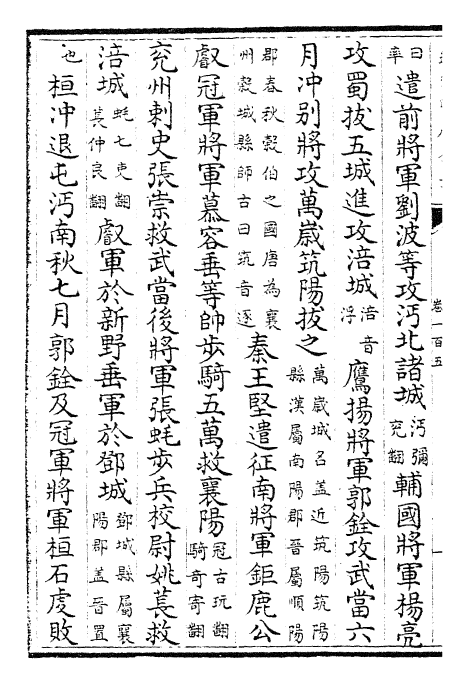 曰率遣前將軍劉波等攻沔北諸城沔彌兖翻輔國將軍楊亮
攻蜀拔五城進攻涪城涪音浮鷹揚將軍郭銓攻武當六
月沖別將攻萬歲筑陽拔之萬歲城名蓋近筑陽筑陽縣漢屬南陽郡晉屬順陽
郡春秋穀伯之國唐為襄州穀城縣師古曰筑音逐秦王堅遣征南將軍鉅鹿公
叡冠軍將軍慕容垂等帥步騎五萬救襄陽冠古玩翻騎奇寄翻
兖州刺史張崇救武當後將軍張蚝步兵校尉姚萇救
涪城蚝七吏翻萇仲良翻叡軍於新野垂軍於鄧城鄧城縣屬襄陽郡蓋晉置
也桓沖退屯沔南秋七月郭銓及冠軍將軍桓石虔敗
卷一百五